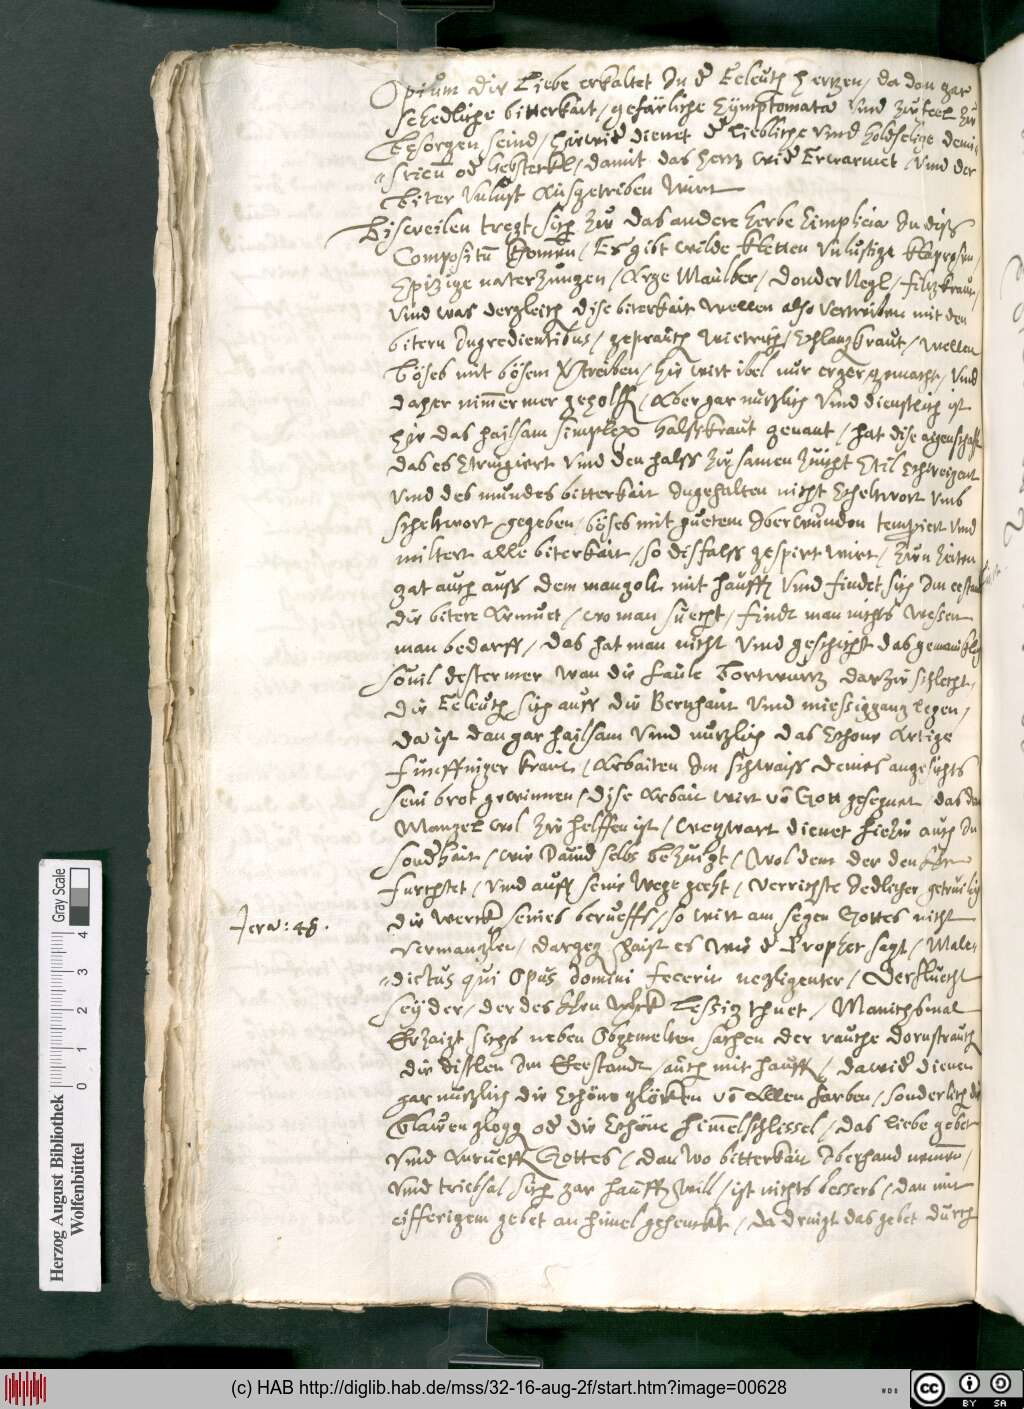 Opium die Liebe erkaltet In d' Eeleuth hertzen / da dan gar
schedliche bitterkait / gefärliche Symptomata vnd Zufeel zu
besorgen seind / hie wid' dienet d' liebliche vnd holdselige demi-
=tricum od' liebsterkl / damit das hertz wid' Erwarmet / vnd der
biter vnlust Ausgetriben Wirt
Bisweilen tregt sich zu das andere herbe Simplicia In diss
Compositū Komen / Es gibt wilde Kletten vnlustige Klaprosen /
Spizige naterzungen / Arge Maulber / donder Negl / filzkraut /
vnd was dergleich dise biterkait wellen also vertreiben mit den
bitern Ingredientibus / geprauch Wietrich / Schlangkraut / wellen
böses mit bösem vertreiben / hie wirt ibel nur erger gemacht / vnd
daher nimmermer geholff / Aber gar nutzlich vnd dienstlich ist
hie das hailsam Simplex halsskraut genant / hat dise aigenschafft
das es stringiert vnd den halss zusamen zuicht Stil schweigent
vnd des mundes bitterkait Ingehalten nicht scheltwort vmb
scheltwort gegeben / böses mit guetem Iberwunden temperiert vnd
miltert alle biterkait / so disfalss gespirt wirt / Zun Zeiten
gat auch auss dem mangolt mit hauffen vnd findet sich Im eestand
die bitere Armuet / wo man suecht / findt man nichts wessen
man bedarff / das hat man nicht vnd geschicht das gemaincklich
souil dester mer wan die faule Bortwurtz darzu schlecht /
die Eeleuth sich auss die Bernhaut vnd miessiggang legen /
da ist dan gar hailsam vnd nutzlich das Schone Artige
funffinger kraut / Arbaiten Im schwaiss deines angesichts
sein brot gewinnen / dise Arbait wirt vō Gott gesegnet das dem
Mangel wol zu helffen ist / wegwart dienet hiezu auch In
sond'hait / wie Dauid selbs bezeugt / Wol dem der den Herrn
furchtet / vnd auff seine Wege geeht / verrichte Iedlicher getruilich
die werck seines berueffs / so wirt am segen Gottes nicht
Jere: 48.
vermanglen / dargeg haist es wie d' Prophet sagt / Male=
=dictus qui Opus Domini fecerit negligenter / Verfluecht
sey der / der des Hrn Werk lessig thuet / Manichsmal
Erzaigt sichs neben Obgemelten sachen der rauche dornstrauch
die distlen Im Eestandt / auch mit hauff / dawid' dienen
gar nutzlich die Schöne glökken vō Allen farben / sonderlich die
blawen glogg od' die Schöne himelschlissel / das liebe gebet
vnd Anrueff Gottes / dan wo bitterkait Iberhand nemen /
vnd triebsal sich gar hauffen will / ist nichts bessers / dan mit
eifferigem gebet an himel gehenckt / da dringt das gebet durch
Herzog August Bibliothek
Wolfenbüttel
0 1 2 3 4
Gray Scale
(c) HAB http://diglib.hab.de/mss/32-16-aug-2f/start.htm?image=00628
cc BY SA